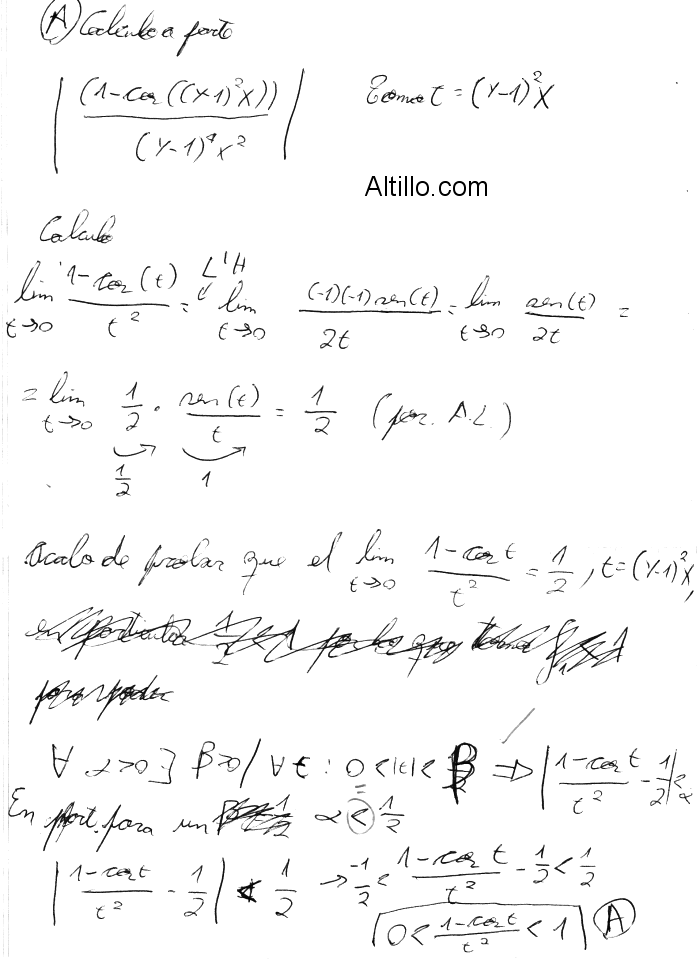 (A) Calculo a parte
| (1-cos((y-1)²x)) / (y-1)⁴x² | Tomo t = (y-1)²x
Altillo.com
Calculo
lim t→0 1-cos(t) / t² = L'H lim t→0 (-1)(-1)sen(t) / 2t = lim t→0 sen(t) / 2t =
= lim t→0 1/2 · sen(t) / t = 1/2 (por. A.L.)
1/2 1
Acabo de probar que el lim t→0 1-cos t / t² = 1/2, t=(y-1)²x,
∀ α>0 ∃ β>0 / ∀t : 0<|t|<β ⇒ | 1-cos t / t² - 1/2 | < α
En part. para un α < 1/2
| 1-cos t / t² - 1/2 | < 1/2 → -1/2 < 1-cos t / t² - 1/2 < 1/2
0 < 1-cos t / t² < 1 (A)